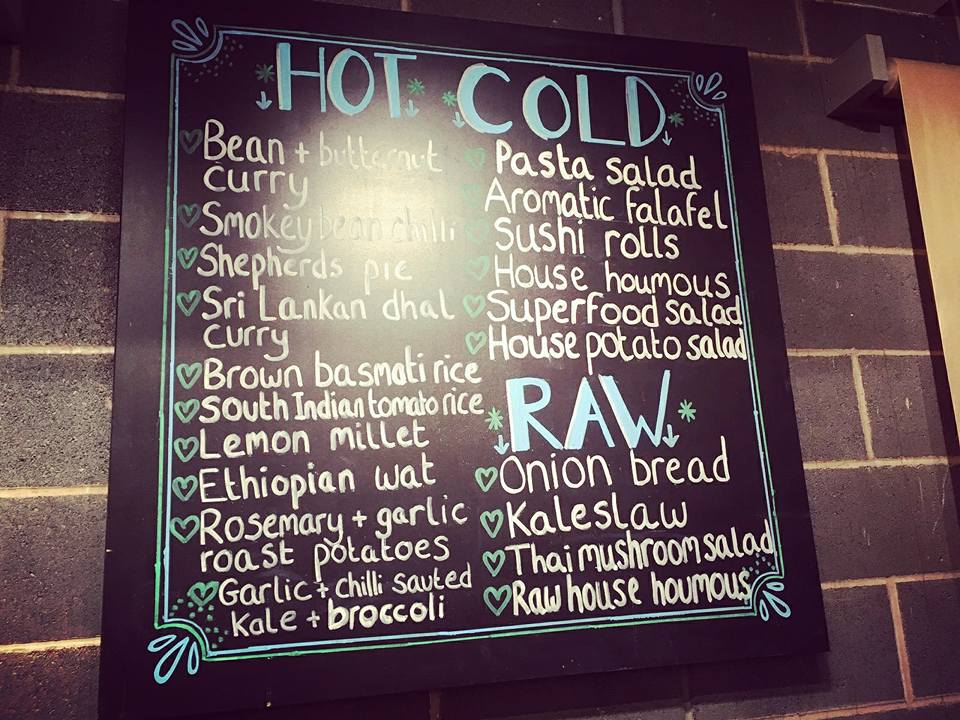 HOT
Bean + butternut
curry
Smokey bean chilli
Shepherds pie
Sri Lankan dhal
curry
Brown basmati rice
South Indian tomato rice
Lemon millet
Ethiopian wat
Rosemary + garlic
roast potatoes
Garlic + chilli sauted
Kale + broccoli
COLD
Pasta salad
Aromatic falafel
Sushi rolls
House houmous
Superfood salad
House potato salad
RAW
Onion bread
Kaleslaw
Thai mushroom salad
Raw house houmous